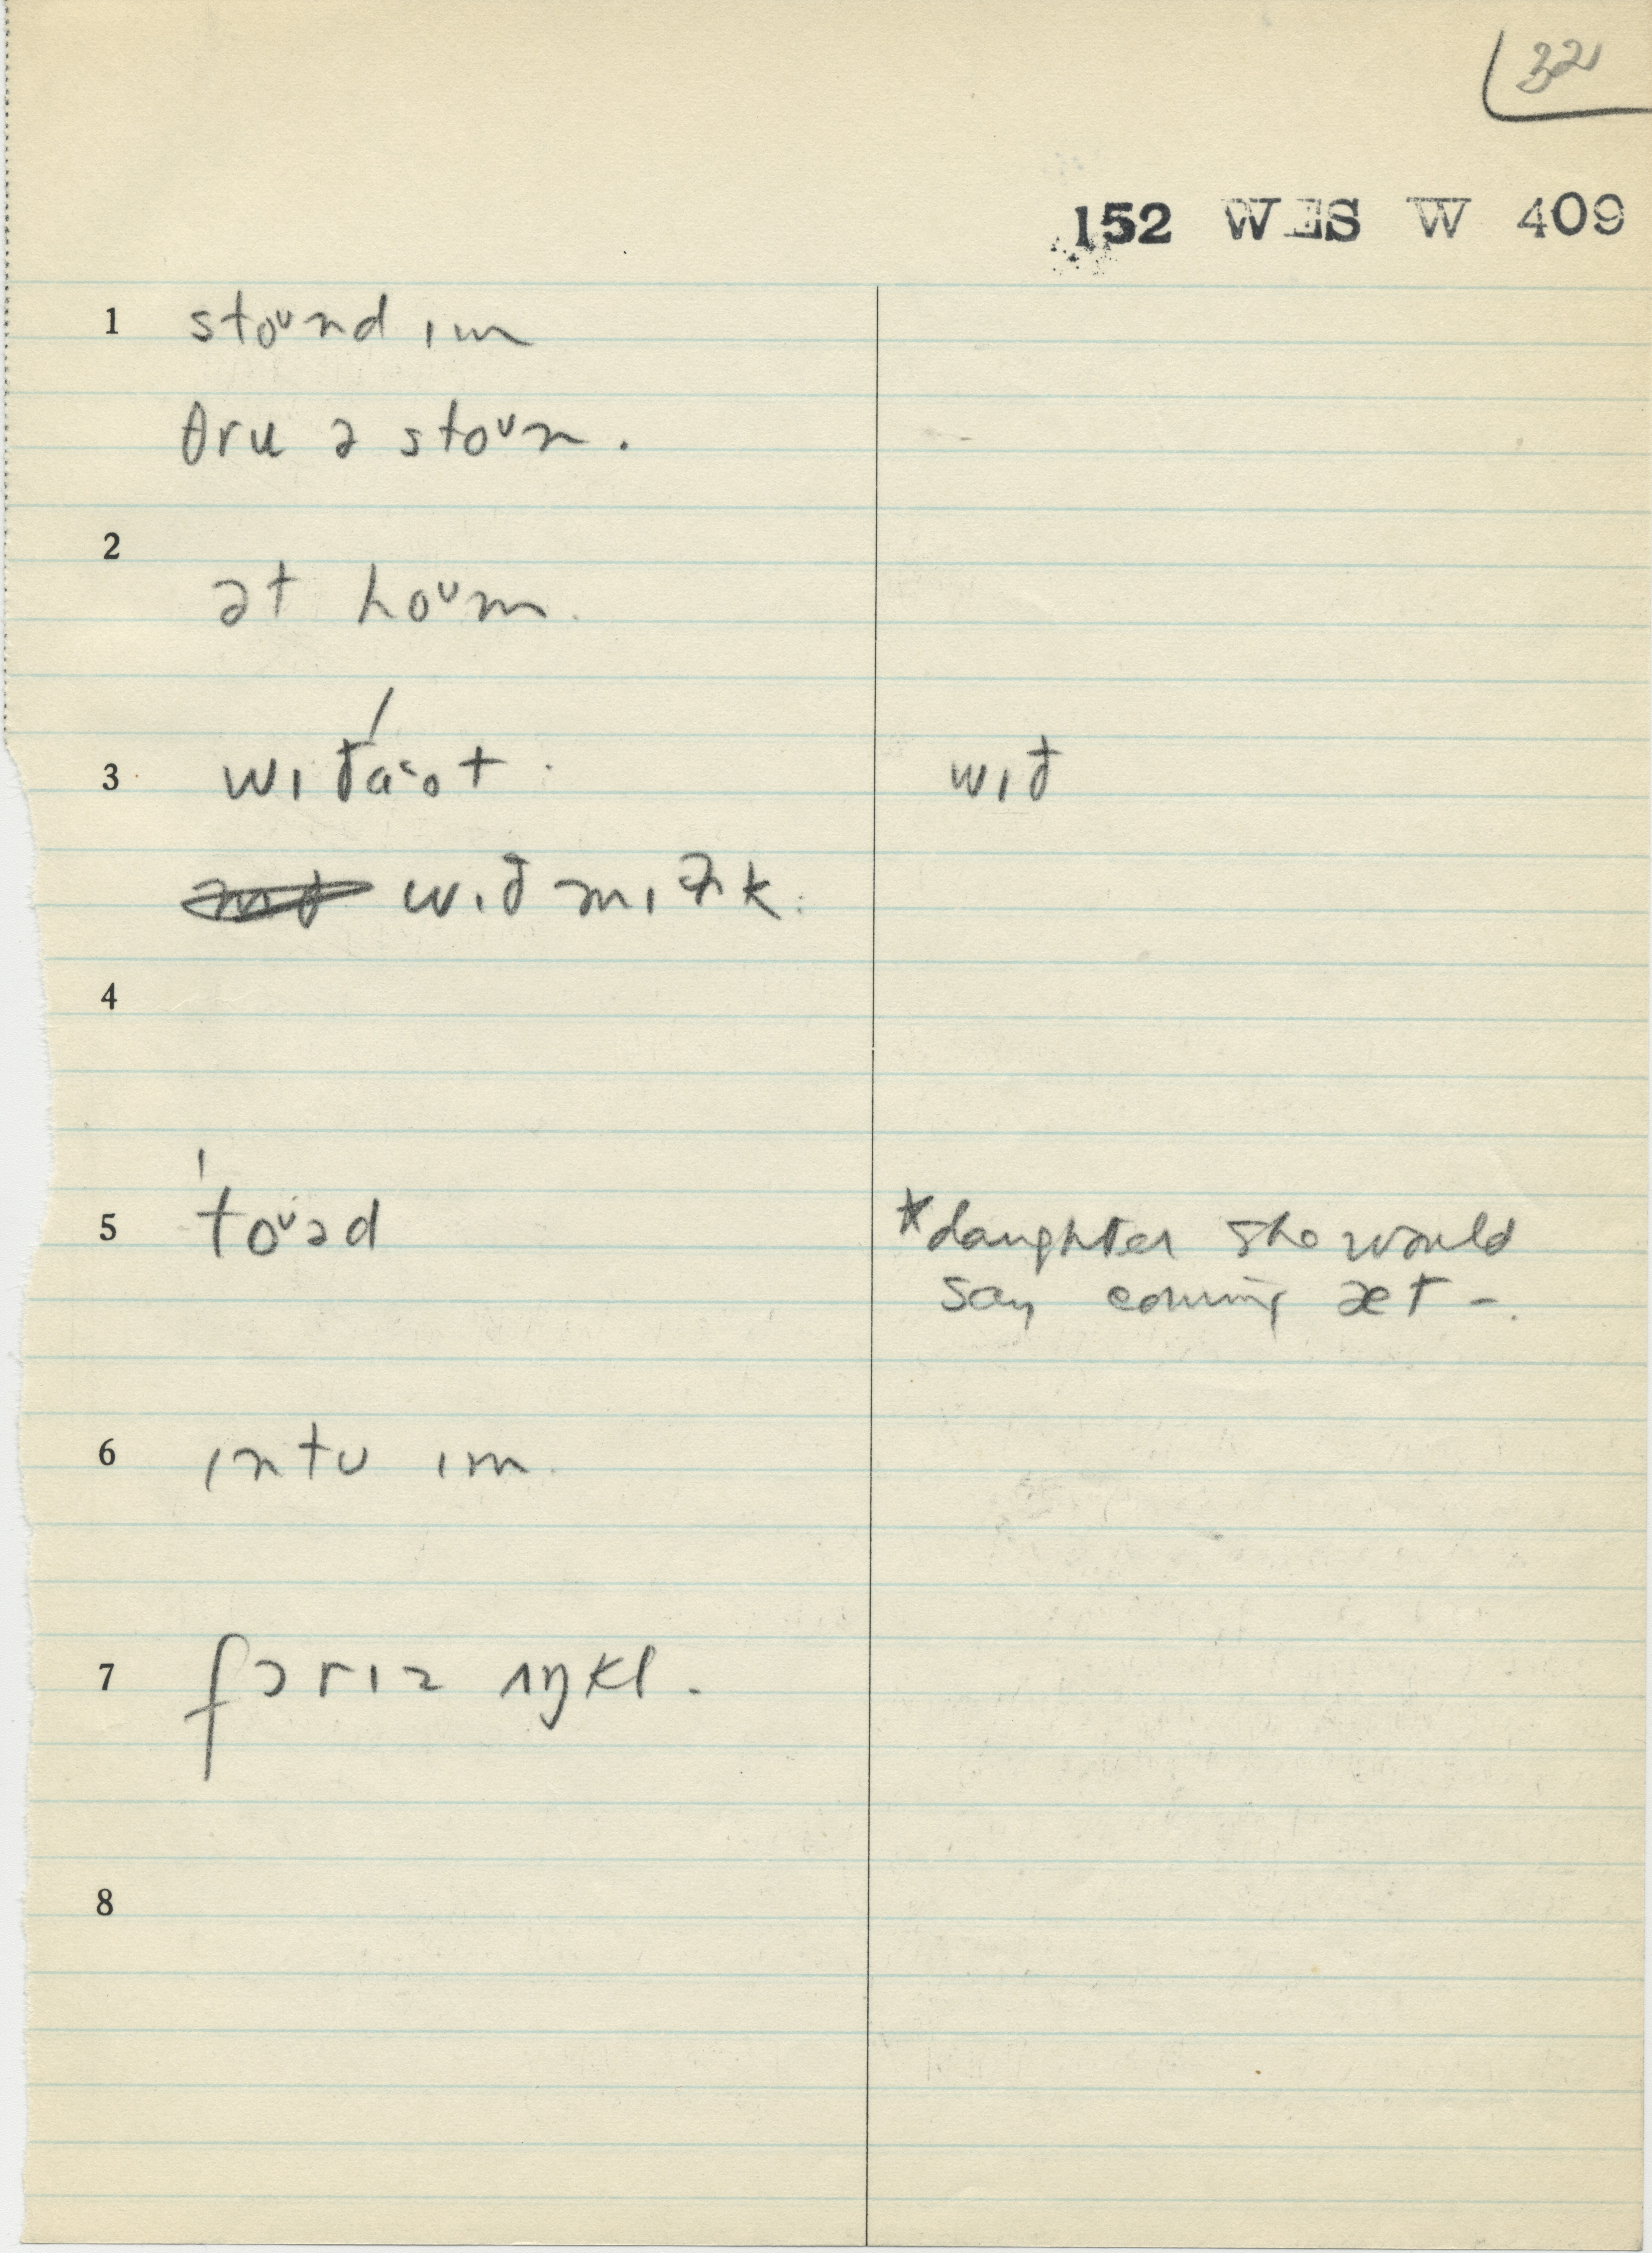 32
152 WES W 409
1 stoᶷnd ɪm
θru ə stoᶷn.
2
ət hoᶷm.
3 wɪðáᵋot. wɪð
wɪð mɪɫk.
4
5 'toᶷəd *daughter she would
say coming æt -.
6 ɪntʊ ɪm.
7 fɔrɪz ʌŋkl.
8